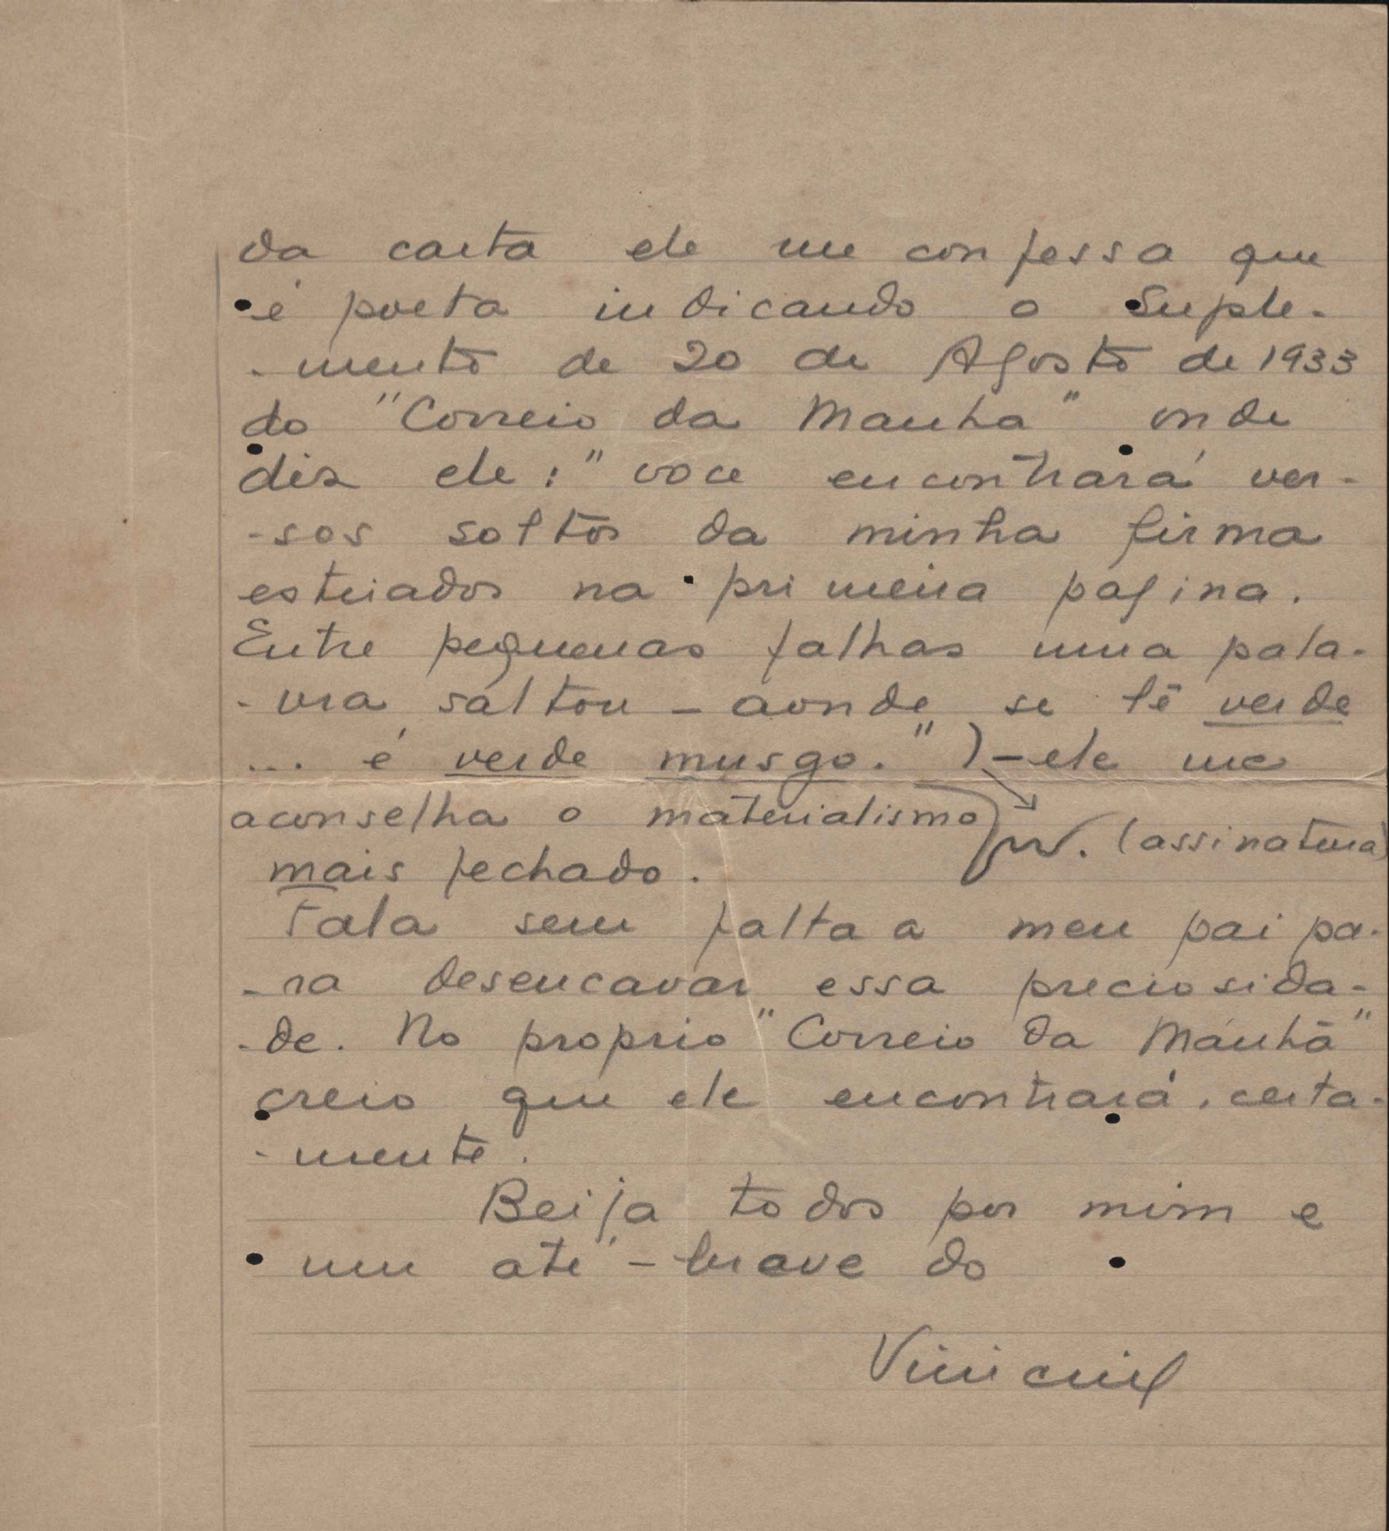 da carta ele me confessa que
é poeta indicando o Suple-
-mento de 20 de Agosto de 1933
do "Correio da Manha" onde
diz ele: "voce encontrará ver-
-sos soltos da minha firma
estriados na primeira pagina.
Entre pequenas falhas uma pala-
-vra saltou - aonde se lê verde
... é verde musgo.") - ele me
aconselha o materialismo
(assinatura)
mais fechado.
Fala sem falta a meu pai pa-
-ra desencavar essa preciosida-
-de. No proprio "Correio da Manhã"
creio que ele encontrará, certa-
-mente.
Beija todos por mim e
um até-breve do
Vinicius